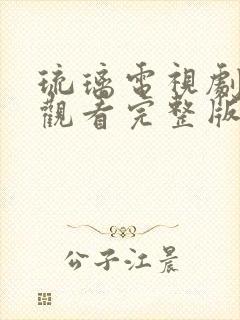 琉璃電視劇
觀看完整版
公子江晨